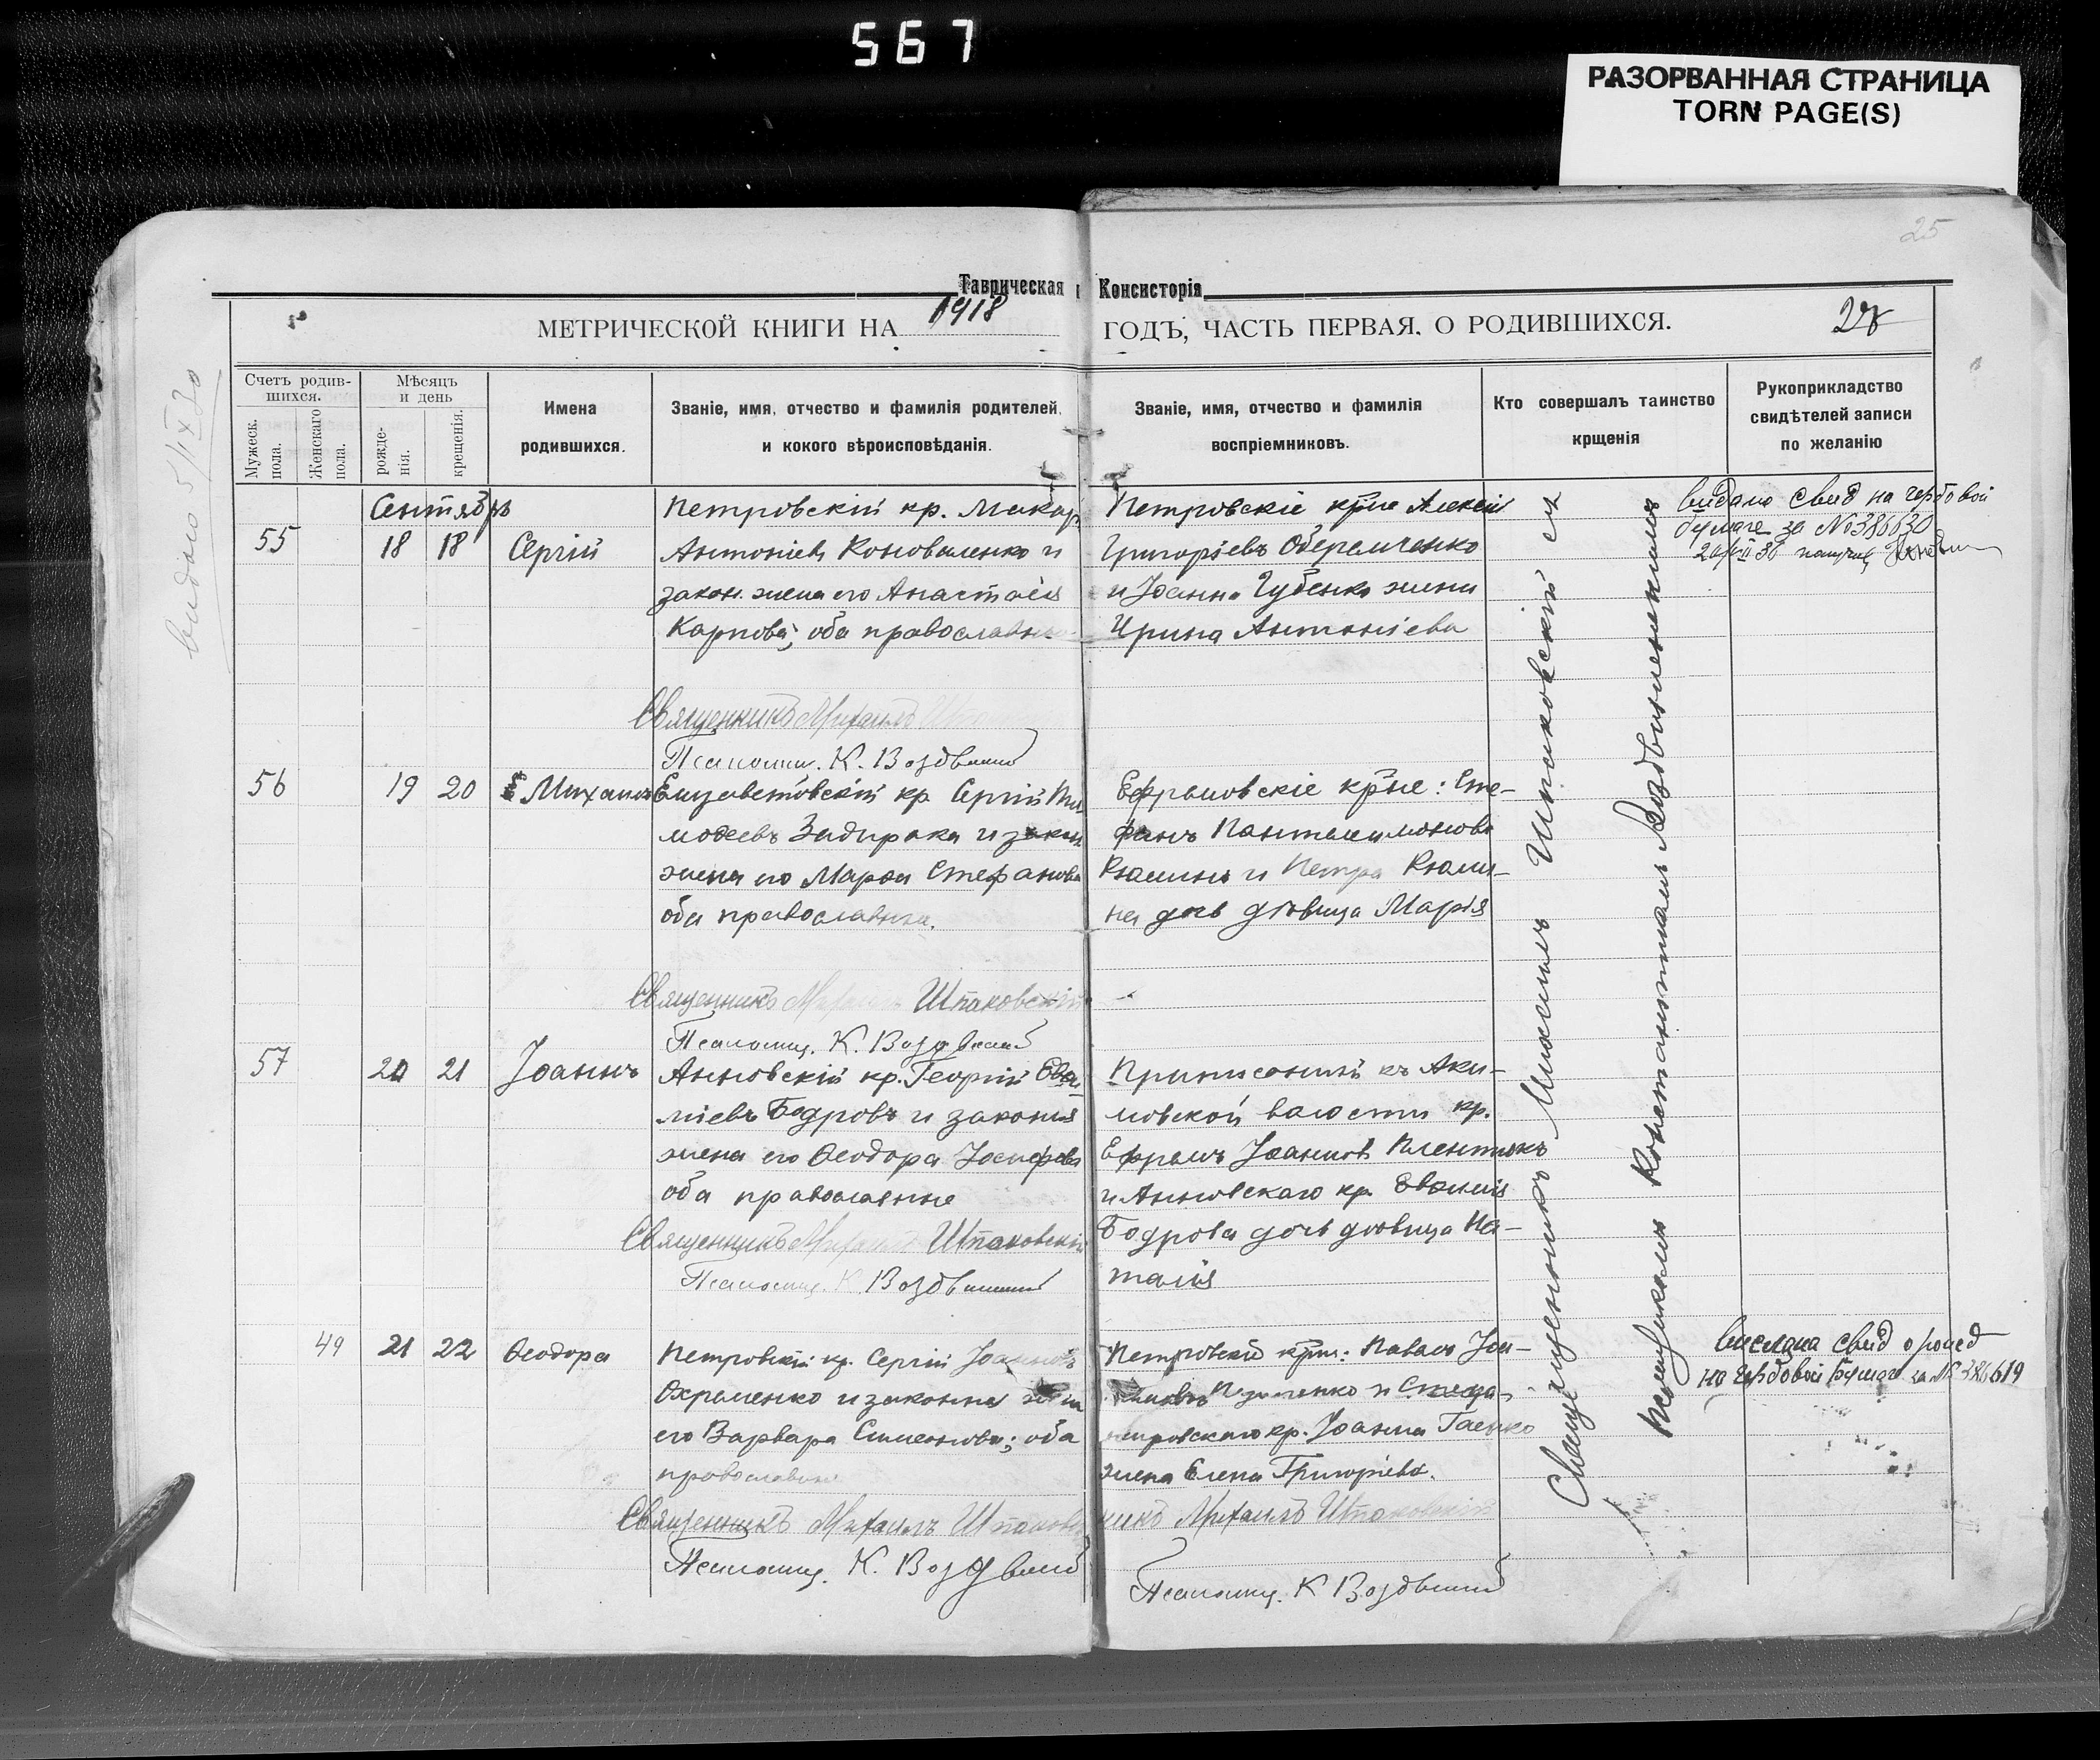 567
РАЗОРВАННАЯ СТРАНИЦА
TORN PAGE(S)
25
Таврическая Консисторія
МЕТРИЧЕСКОЙ КНИГИ НА 1918 ГОДЪ, ЧАСТЬ ПЕРВАЯ. О РОДИВШИХСЯ.
28
Счетъ родив-
шихся.
Мужеск.
пола.
Женскаго
пола.
Мѣсяцъ
и день
рожде-
нія.
крещенія.
Имена
родившихся.
Званіе, имя, отчество и фамилія родителей,
и кокого вѣроисповѣданія.
Званіе, имя, отчество и фамилія
воспріемниковъ.
Кто совершалъ таинство
крщенія
Рукоприкладство
свидѣтелей записи
по желанію
видано 5/IX 30
Сентябрь
55
18 18
Сергій
Петровскій кр. Макар
Антоніевъ Коноваленко и
закон. жена его Анастасія
Карпова; оба православные
Священникъ Михаилъ
Псаломщ. К. Воздвиж
Петровскіе кр̃не Алексій
Григоріевъ Оберемченко
и Іоанна Губенко жена
Ирина Антоніева
видано свид на гербовой
бумаге за № 386630
56
19 20
Михаилъ
Елизаветовскій кр. Сергій Ти
моѳеевъ Задирака и закон
жена его Марѳа Стефанова
оба православные.
Священникъ Михаилъ Шпаковскій
Псаломщ. К. Воздвиж
Ефремовскіе кр̃не: Сте-
фанъ Пантелеимоновъ
Кюминъ и Петра Кюми-
на дочь дѣвица Марія
57
20 21
Іоаннъ
Анновскій кр. Георгій Евѳи
міевъ Бодровъ и законная
жена его Ѳеодора Іосифова
оба православные
Священникъ Михаилъ Шпаковскій
Псаломщ. К. Воздвиж
Приписанный къ Аки-
мовской волости кр.
Ефремъ Іоанновъ
и Анновскаго кр. Евѳимія
Бодрова дочь дѣвица На-
талія
49
21 22
Ѳеодора
Петровскій кр. Сергій Іоанновъ
Охременко и законна жена
его Варвара Симеонова; оба
православные
Священникъ Михаилъ Шпаков
Псаломщ. К. Воздвиж
Петровскіе кр̃не: Павелъ Іоа-
нновъ и
петровскаго кр. Іоанна Гаенко
жена Елена Григоріева.
никъ Михаилъ Шпаковскій
Псаломщ. К Воздвиж
Священникъ Михаилъ Шпаковскій съ
псаломщикомъ Константиномъ Воздвиженскимъ
свид о рожд
на гербовой бумаге за № 386619